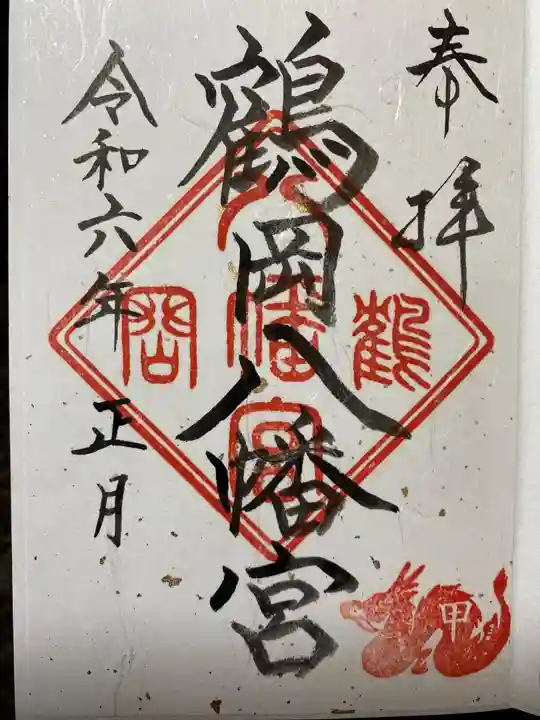 奉拝
鶴岡八幡宮
鶴岡
八幡宮
令和六年 正月
甲辰